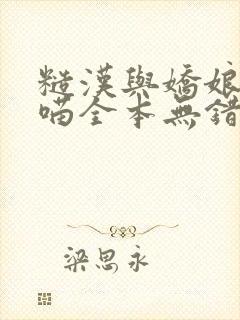 糙漢與嬌娘
喵全本無錯
梁思永